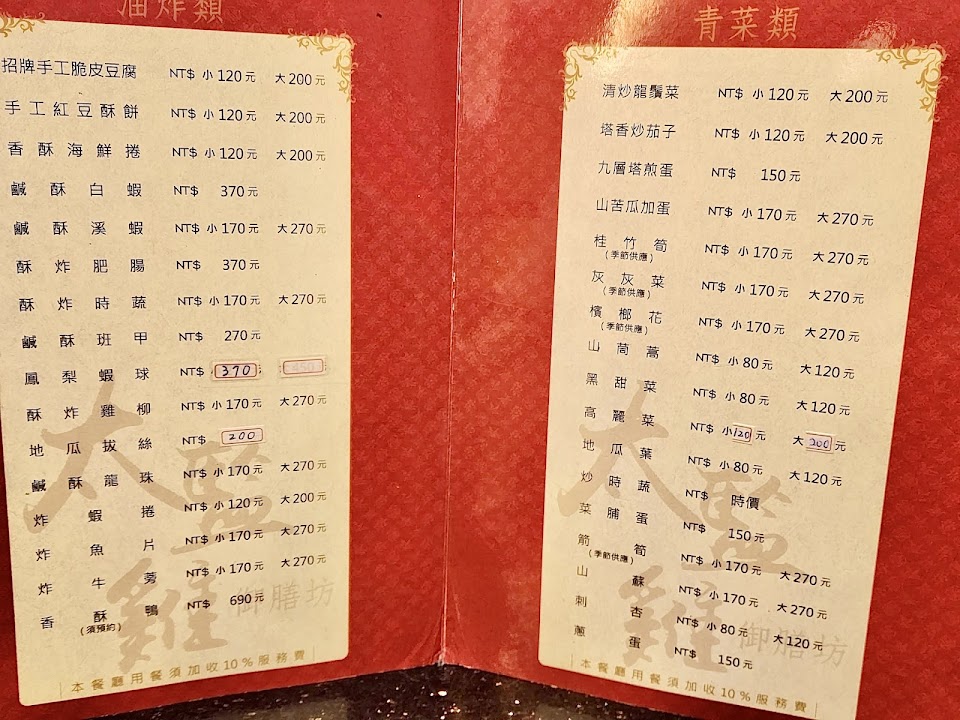 油炸類
招牌手工脆皮豆腐 NT$ 小 120 元 大 200 元
手工紅豆酥餅 NT$ 小 120 元 大 200 元
香酥海鮮捲 NT$ 小 120 元 大 200 元
鹹酥白蝦 NT$ 370 元
鹹酥溪蝦 NT$ 小 170 元 大 270 元
酥炸肥腸 NT$ 370 元
酥炸時蔬 NT$ 小 170 元 大 270 元
鹹酥班甲 NT$ 270 元
鳳梨蝦球 NT$ 370
酥炸雞柳 NT$ 小 170 元 大 270 元
地瓜拔絲 NT$ 200
鹹酥龍珠 NT$ 小 170 元 大 270 元
炸蝦捲 NT$ 小 120 元 大 200 元
炸魚片 NT$ 小 170 元 大 270 元
炸牛蒡 NT$ 小 170 元 大 270 元
香酥鴨 NT$ 690 元
(須預約)
太監雞
御膳坊
本餐廳用餐須加收10%服務費
青菜類
清炒龍鬚菜 NT$ 小 120 元 大 200 元
塔香炒茄子 NT$ 小 120 元 大 200 元
九層塔煎蛋 NT$ 150 元
山苦瓜加蛋 NT$ 小 170 元 大 270 元
桂竹筍 NT$ 小 170 元 大 270 元
(季節供應)
灰灰菜 NT$ 小 170 元 大 270 元
(季節供應)
檳榔花 NT$ 小 170 元 大 270 元
(季節供應)
山茼蒿 NT$ 小 80 元 大 120 元
黑甜菜 NT$ 小 80 元 大 120 元
高麗菜 NT$ 小 120 元 大 200 元
地瓜葉 NT$ 小 80 元 大 120 元
炒時蔬 NT$ 時價
菜脯蛋 NT$ 150 元
箭筍 NT$ 小 170 元 大 270 元
(季節供應)
山蘇 NT$ 小 170 元 大 270 元
刺杏 NT$ 小 80 元 大 120 元
蔥蛋 NT$ 150 元
太監雞
御膳坊
本餐廳用餐須加收10%服務費